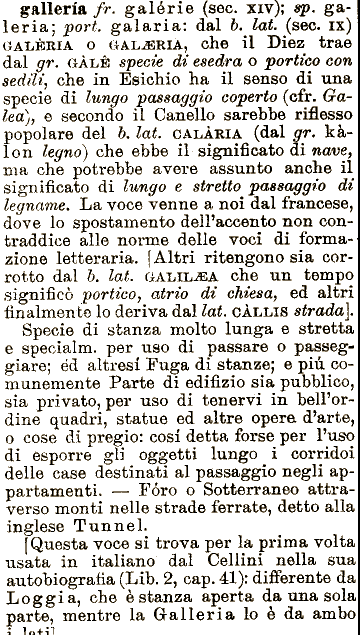 galleria fr. galérie (sec. XIV); sp. ga-
leria; port. galaria: dal b. lat. (sec. IX)
GALÈRIA O GALÆRIA, che il Diez trae
dal gr. GÀLÊ specie di esedra o portico con
sedili, che in Esichio ha il senso di una
specie di lungo passaggio coperto (cfr. Ga-
lea), e secondo il Canello sarebbe riflesso
popolare del b. lat. CALÀRIA (dal gr. kà-
lon legno) che ebbe il significato di nave,
ma che potrebbe avere assunto anche il
significato di lungo e stretto passaggio di
legname. La voce venne a noi dal francese,
dove lo spostamento dell'accento non con-
traddice alle norme delle voci di forma-
zione letteraria. [Altri ritengono sia cor-
rotto dal b. lat. GALILÆA che un tempo
significò portico, atrio di chiesa, ed altri
finalmente lo deriva dal lat. CÀLLIS strada].
Specie di stanza molto lunga e stretta
e specialm. per uso di passare o passeg-
giare; ed altresí Fuga di stanze; e piú co-
munemente Parte di edifizio sia pubblico,
sia privato, per uso di tenervi in bell'or-
dine quadri, statue ed altre opere d'arte,
o cose di pregio: cosí detta forse per l'uso
di esporre gli oggetti lungo i corridoi
delle case destinati al passaggio negli ap-
partamenti. — Fóro o Sotterraneo attra-
verso monti nelle strade ferrate, detto alla
inglese Tunnel.
[Questa voce si trova per la prima volta
usata in italiano dal Cellini nella sua
autobiografia (Lib. 2, cap. 41): differente da
Loggia, che è stanza aperta da una sola
parte, mentre la Galleria lo è da ambo
i lati]